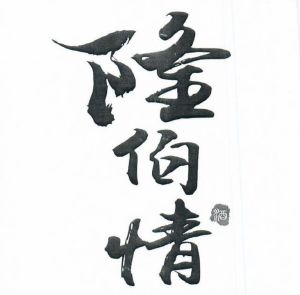 隆伯情
酒